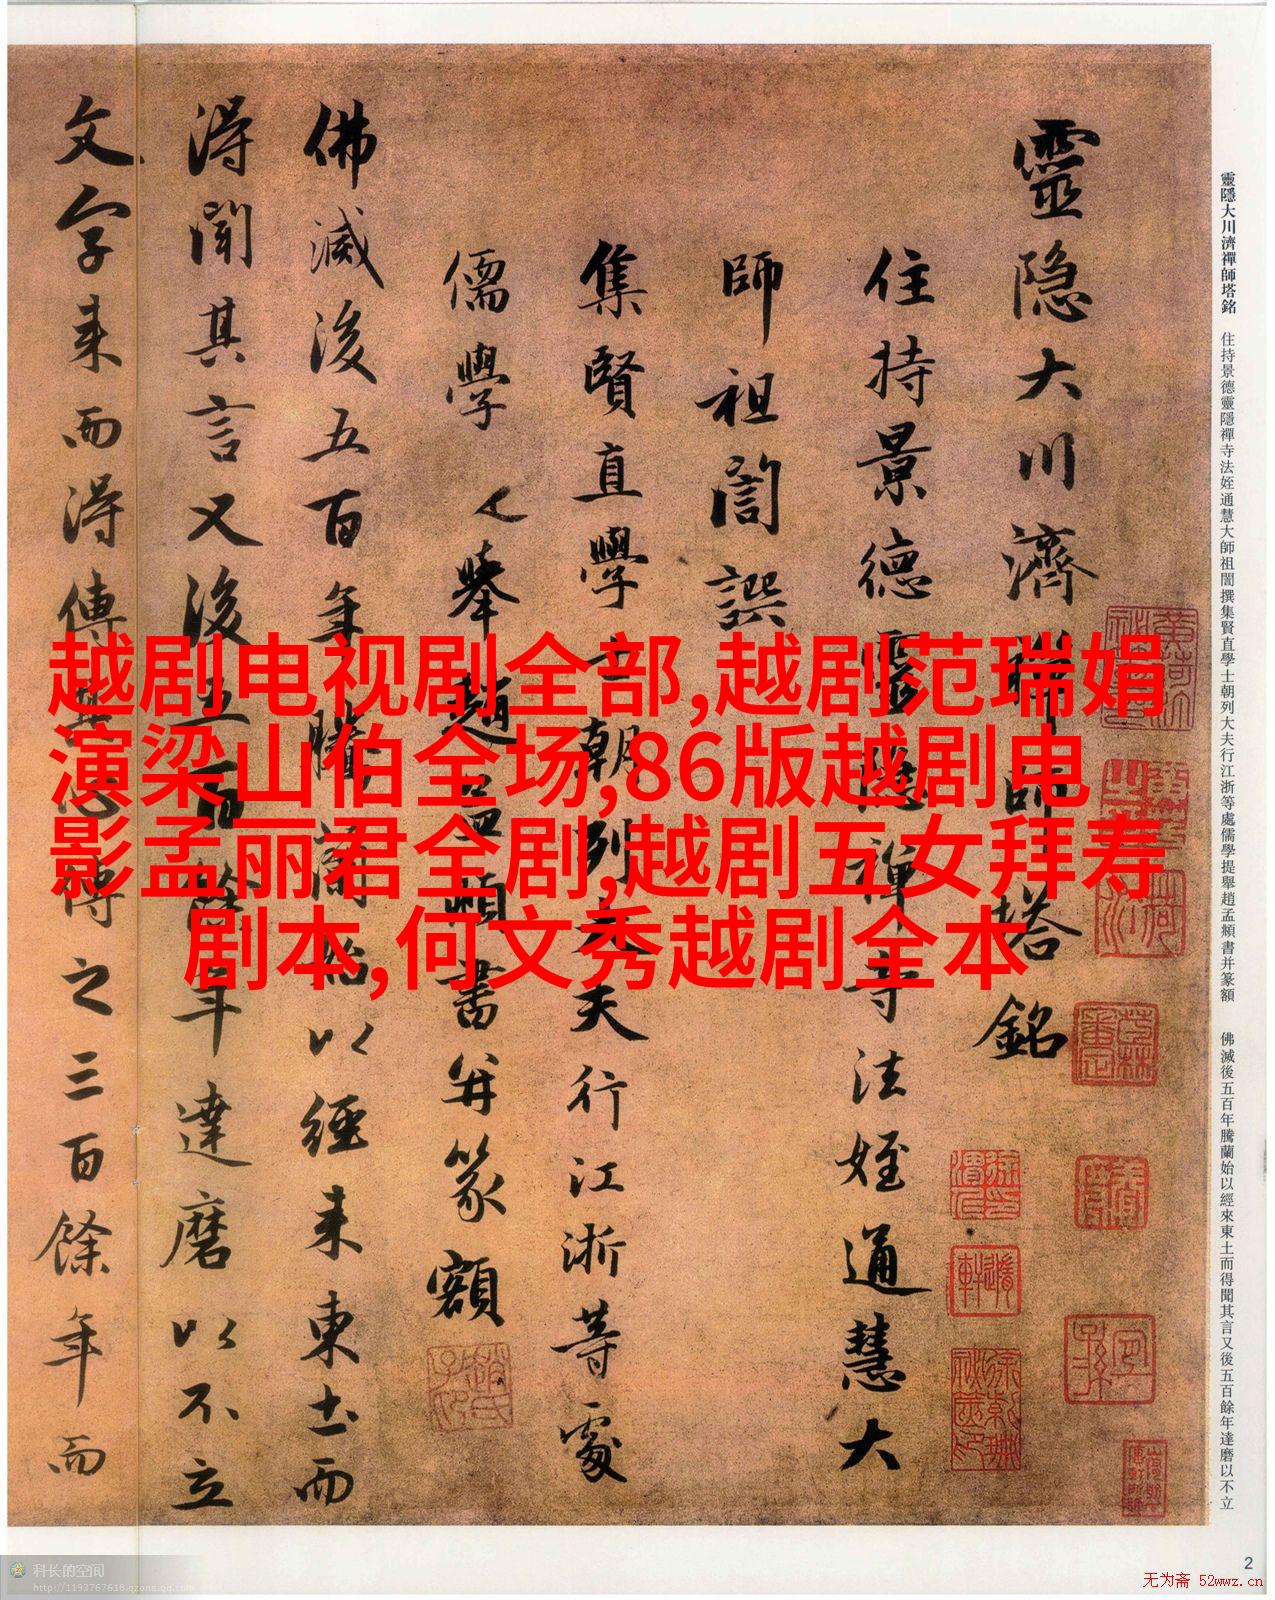 靈隱大川濟禪師塔銘
住持景德靈隱禪寺法姪通慧大
師祖誾譔
集賢直學士朝列大夫行江浙等處
儒學提舉趙孟頫書并篆額
佛滅後五百年騰蘭始以經来東土而
得聞其言又後五百餘年達磨以不立
文字来而得傳其心傳之三百餘年而
靈隱大川濟禪師塔銘 住持景德靈隱禪寺法姪通慧大師祖誾撰集賢直學士朝列大夫行江浙等處儒學提舉趙孟頫書并篆額 佛滅後五百年騰蘭始以經來東土而得聞其言又後五百餘年達磨以不立
越剧电视剧全部,越剧范瑞娟
演梁山伯全场,86版越剧电
影孟丽君全剧,越剧五女拜寿
剧本,何文秀越剧全本
2
科长的空间
http://1193767618.qzone.qq.com
无为斋 52wwz.cn